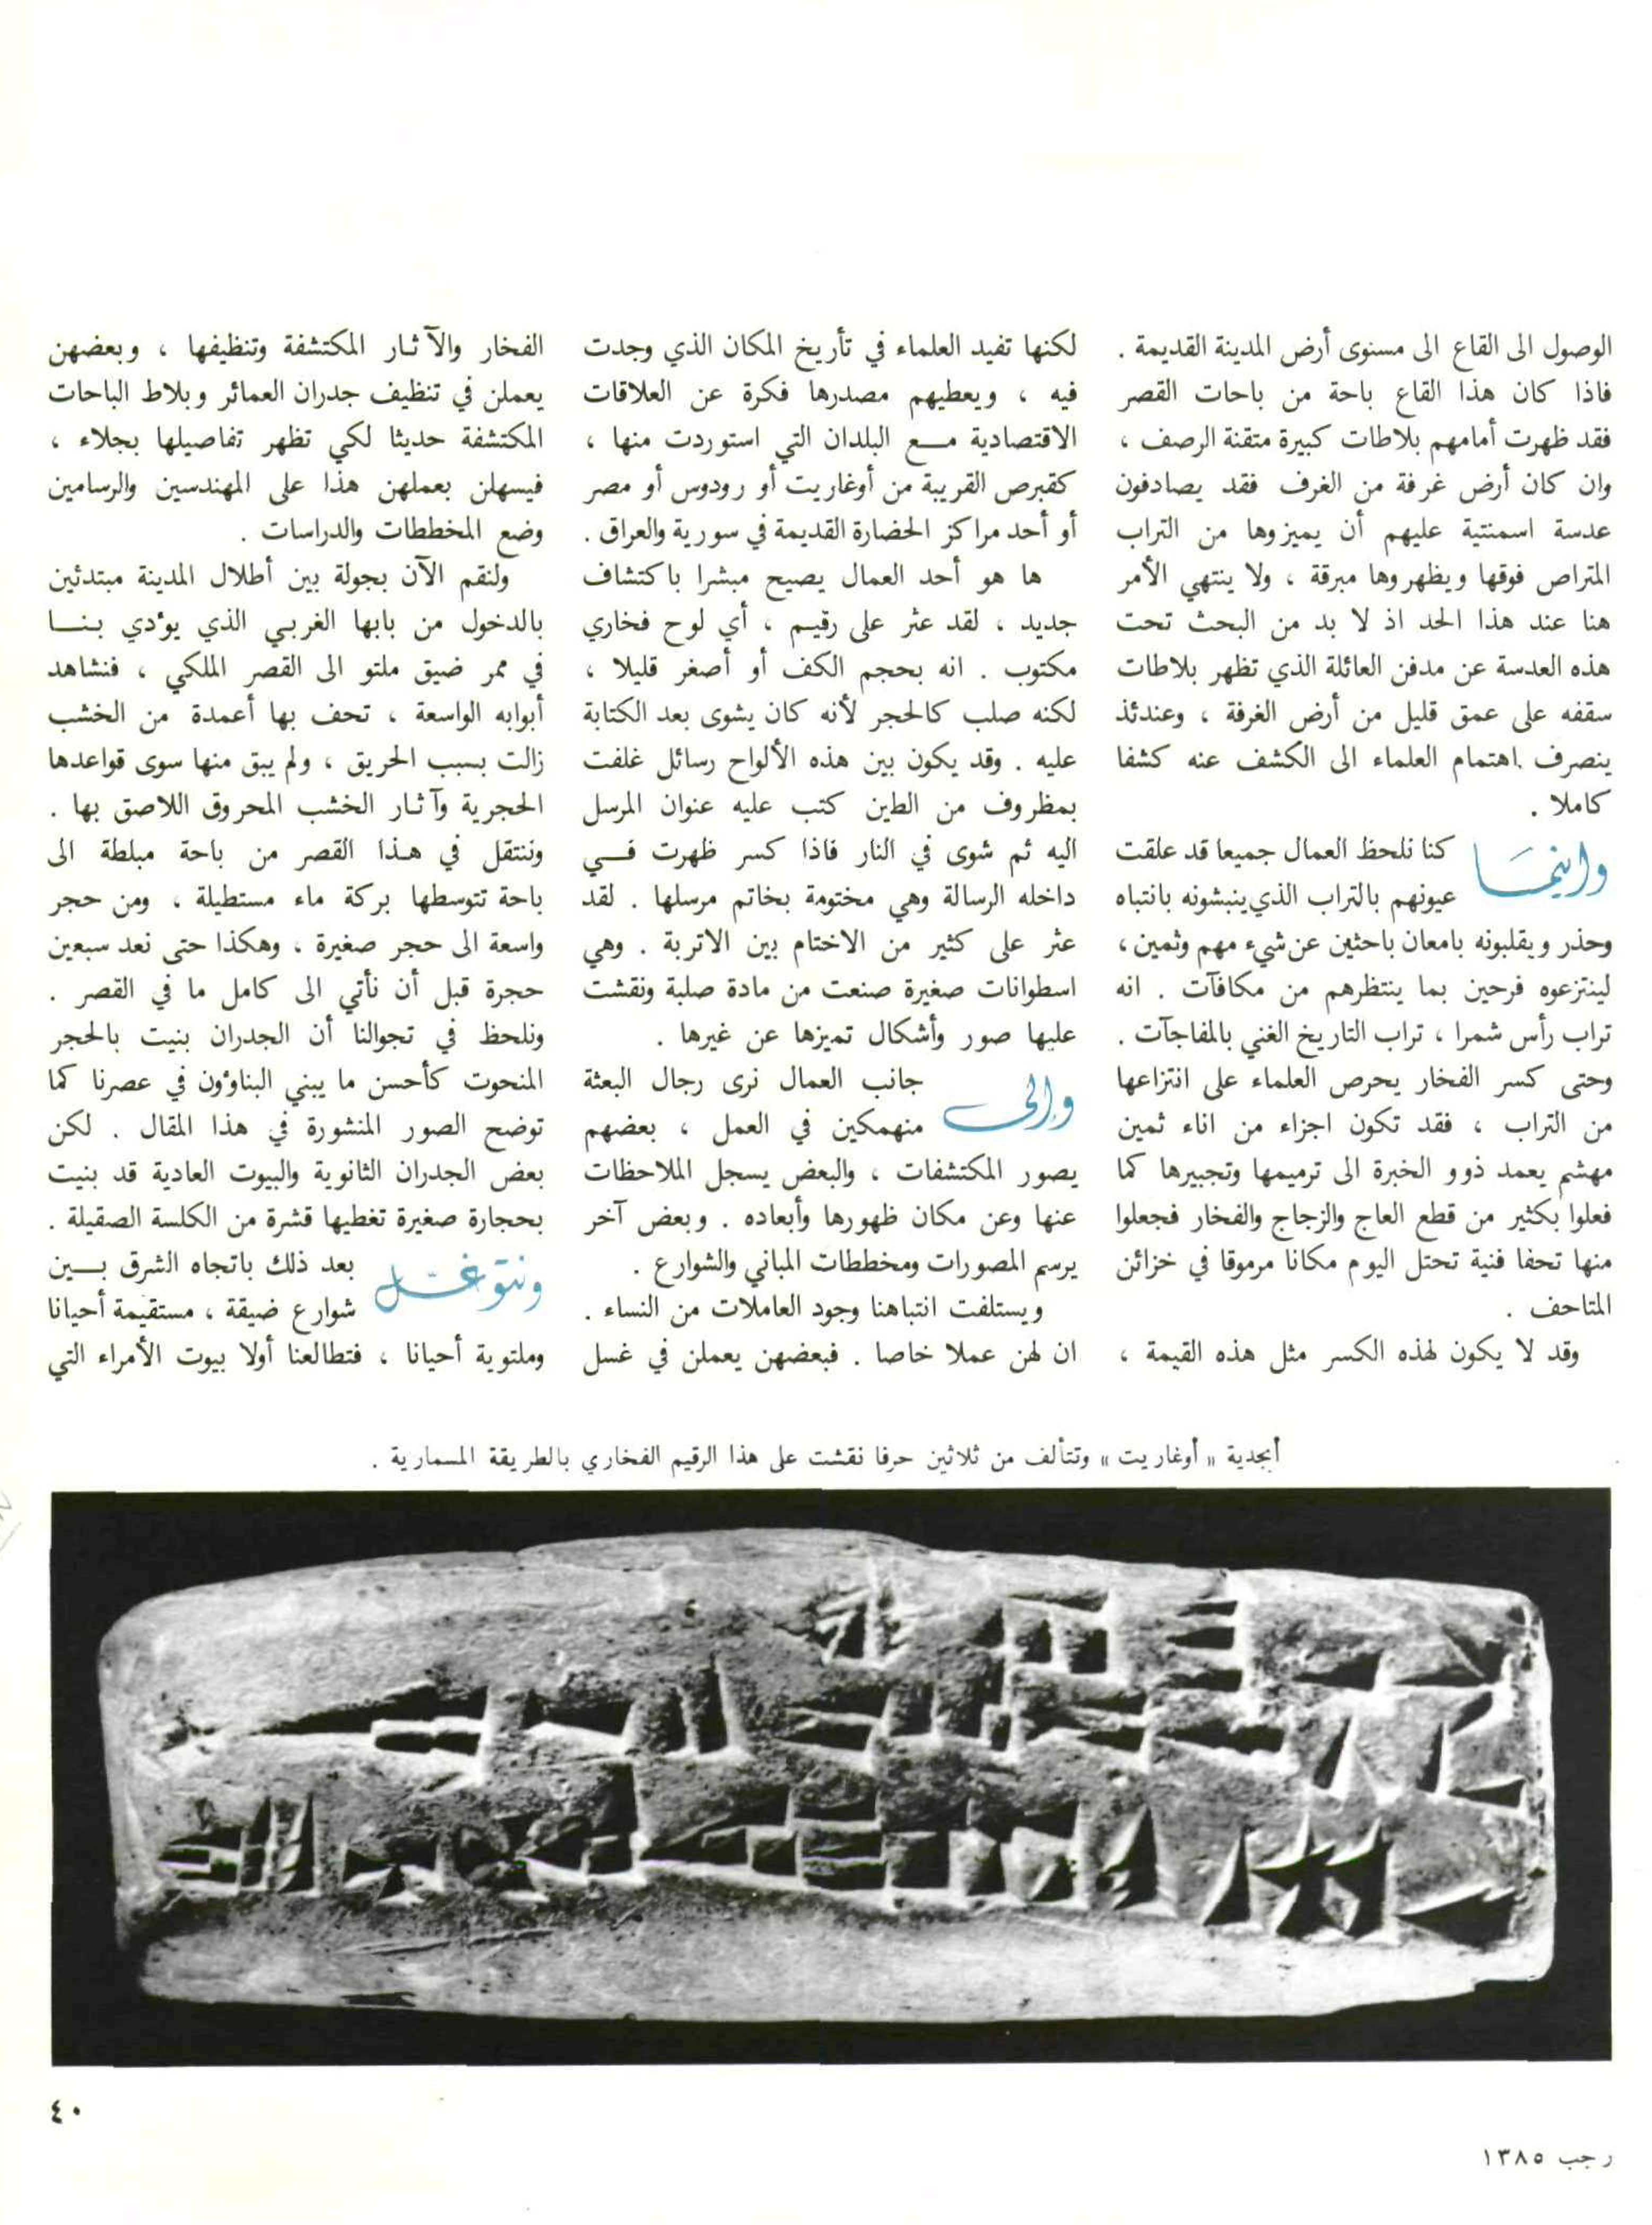 الوصول الى القاع الى مستوى أرض المدينة القديمة .
فاذا كان هذا القاع باحة من باحات القصر
فقد ظهرت أمامهم بلاطات كبيرة متقنة الرصف ،
وان كان أرض غرفة من الغرف فقد يصادفون
عدسة اسمنتية عليهم أن يميزوها من التراب
المتراص فوقها ويظهروها مبرقة ، ولا ينتهي الأمر
هنا عند هذا الحد اذ لا بد من البحث تحت
هذه العدسة عن مدفن العائلة الذي تظهر بلاطات
سقفه على عمق قليل من أرض الغرفة ، وعندئذ
ينصرف اهتمام العلماء الى الكشف عنه كشفا
كاملا .
واينما كنا نلحظ العمال جميعا قد علقت
عيونهم بالتراب الذي ينبشونه بانتباه
وحذر ويقلبونه بامعان باحثين عن شيء مهم وثمين ،
لينتزعوه فرحين بما ينتظرهم من مكافآت . انه
تراب رأس شمرا ، تراب التاريخ الغني بالمفاجآت .
وحتى كسر الفخار يحرص العلماء على انتزاعها
من التراب ، فقد تكون اجزاء من اناء ثمين
مهشم يعمد ذوو الخبرة الى ترميمها وتجبيرها كما
فعلوا بكثير من قطع العاج والزجاج والفخار فجعلوا
منها تحفا فنية تحتل اليوم مكانا مرموقا في خزائن
المتاحف .
وقد لا يكون لهذه الكسر مثل هذه القيمة ،
لكنها تفيد العلماء في تأريخ المكان الذي وجدت
فيه ، ويعطيهم مصدرها فكرة عن العلاقات
الاقتصادية مع البلدان التي استوردت منها ،
كقبرص القريبة من أوغاريت أو رودوس أو مصر
أو أحد مراكز الحضارة القديمة في سورية والعراق .
ها هو أحد العمال يصيح مبشرا باكتشاف
جديد ، لقد عثر على رقيم ، أي لوح فخاري
مكتوب . انه بحجم الكف أو أصغر قليلا ،
لكنه صلب كالحجر لأنه كان يشوى بعد الكتابة
عليه . وقد يكون بين هذه الألواح رسائل غلفت
بمظروف من الطين كتب عليه عنوان المرسل
اليه ثم شوى في النار فاذا كسر ظهرت في
داخله الرسالة وهي مختومة بخاتم مرسلها . لقد
عثر على كثير من الاختام بين الاتربة . وهي
اسطوانات صغيرة صنعت من مادة صلبة ونقشت
عليها صور وأشكال تميزها عن غيرها .
والى جانب العمال نرى رجال البعثة
منهمكين في العمل ، بعضهم
يصور المكتشفات ، والبعض يسجل الملاحظات
عنها وعن مكان ظهورها وأبعاده . وبعض آخر
يرسم المصورات ومخططات المباني والشوارع .
ويستلفت انتباهنا وجود العاملات من النساء .
ان لهن عملا خاصا . فبعضهن يعملن في غسل
الفخار والآثار المكتشفة وتنظيفها ، وبعضهن
يعملن في تنظيف جدران العمائر وبلاط الباحات
المكتشفة حديثا لكي تظهر تفاصيلها بجلاء ،
فيسهلن بعملهن هذا على المهندسين والرسامين
وضع المخططات والدراسات .
ولنقم الآن بجولة بين أطلال المدينة مبتدئين
بالدخول من بابها الغربي الذي يؤدي بنا
في ممر ضيق ملتو الى القصر الملكي ، فنشاهد
أبوابه الواسعة ، تحف بها أعمدة من الخشب
زالت بسبب الحريق ، ولم يبق منها سوى قواعدها
الحجرية وآثار الخشب المحروق اللاصق بها .
وننتقل في هذا القصر من باحة مبلطة الى
باحة تتوسطها بركة ماء مستطيلة ، ومن حجر
واسعة الى حجر صغيرة ، وهكذا حتى نعد سبعين
حجرة قبل أن نأتي الى كامل ما في القصر .
ونلحظ في تجوالنا أن الجدران بنيت بالحجر
المنحوت كأحسن ما يبني البناؤون في عصرنا كما
توضح الصور المنشورة في هذا المقال . لكن
بعض الجدران الثانوية والبيوت العادية قد بنيت
بحجارة صغيرة تغطيها قشرة من الكلسة الصقيلة .
ونتوغل بعد ذلك باتجاه الشرق بين
شوارع ضيقة ، مستقيمة أحيانا
وملتوية أحيانا ، فتطالعنا أولا بيوت الأمراء التي
أبجدية « أوغاريت » وتتألف من ثلاثين حرفا نقشت على هذا الرقيم الفخاري بالطريقة المسمارية .
٤٠
رجب ١٣٨٥